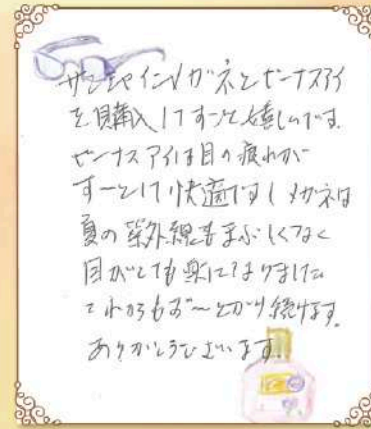 サンシャインメガネとビーナスアイ
を購入してすごく嬉しいです。
ビーナスアイは目の疲れが
すーとして快適ですしメガネは
夏の紫外線もまぶしくなく
目がとても楽になりました
これからもず〜とかけ続けます。
ありがとうございます。